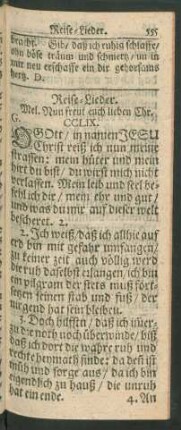 Reise-Lieder. 555
bracht. Gib, daß ich ruhig schlaffe,
ohn böse träum und schmertz, un in
mir neu erschaffe ein dir gehorsams
hertz. D.
Reise-Lieder.
Mel. Nun freut euch lieben Chr.
G. CCLIX.
O GOtt, in namen JESU
Christ reiß ich nun meine
strassen: mein hüter und mein
hirt du bist, du wirst mich nicht
verlassen. Mein leib und seel be-
fehl ich dir, mein ehr und gut,
und was du mir auf dieser welt
bescheret. 2.
2. Ich weiß, daß ich allhie auf
erd bin mit gefahr umfangen,
zu keiner zeit auch völlig werd
die ruh daselbst erlangen, ich bin
ein pilgram der stets muß fort-
setzen seinen stab und fuß, der
nirgend hat sein bleiben.
3. Doch hilffstu, daß ich über-
zu die noth noch überwinde, biß
daß ich dort die wahre ruh und
rechte heymath finde: da dest ist
müh und sorge aus, da ich bin
eigendlich zu hauß, die unruh
hat ein ende. 4. An